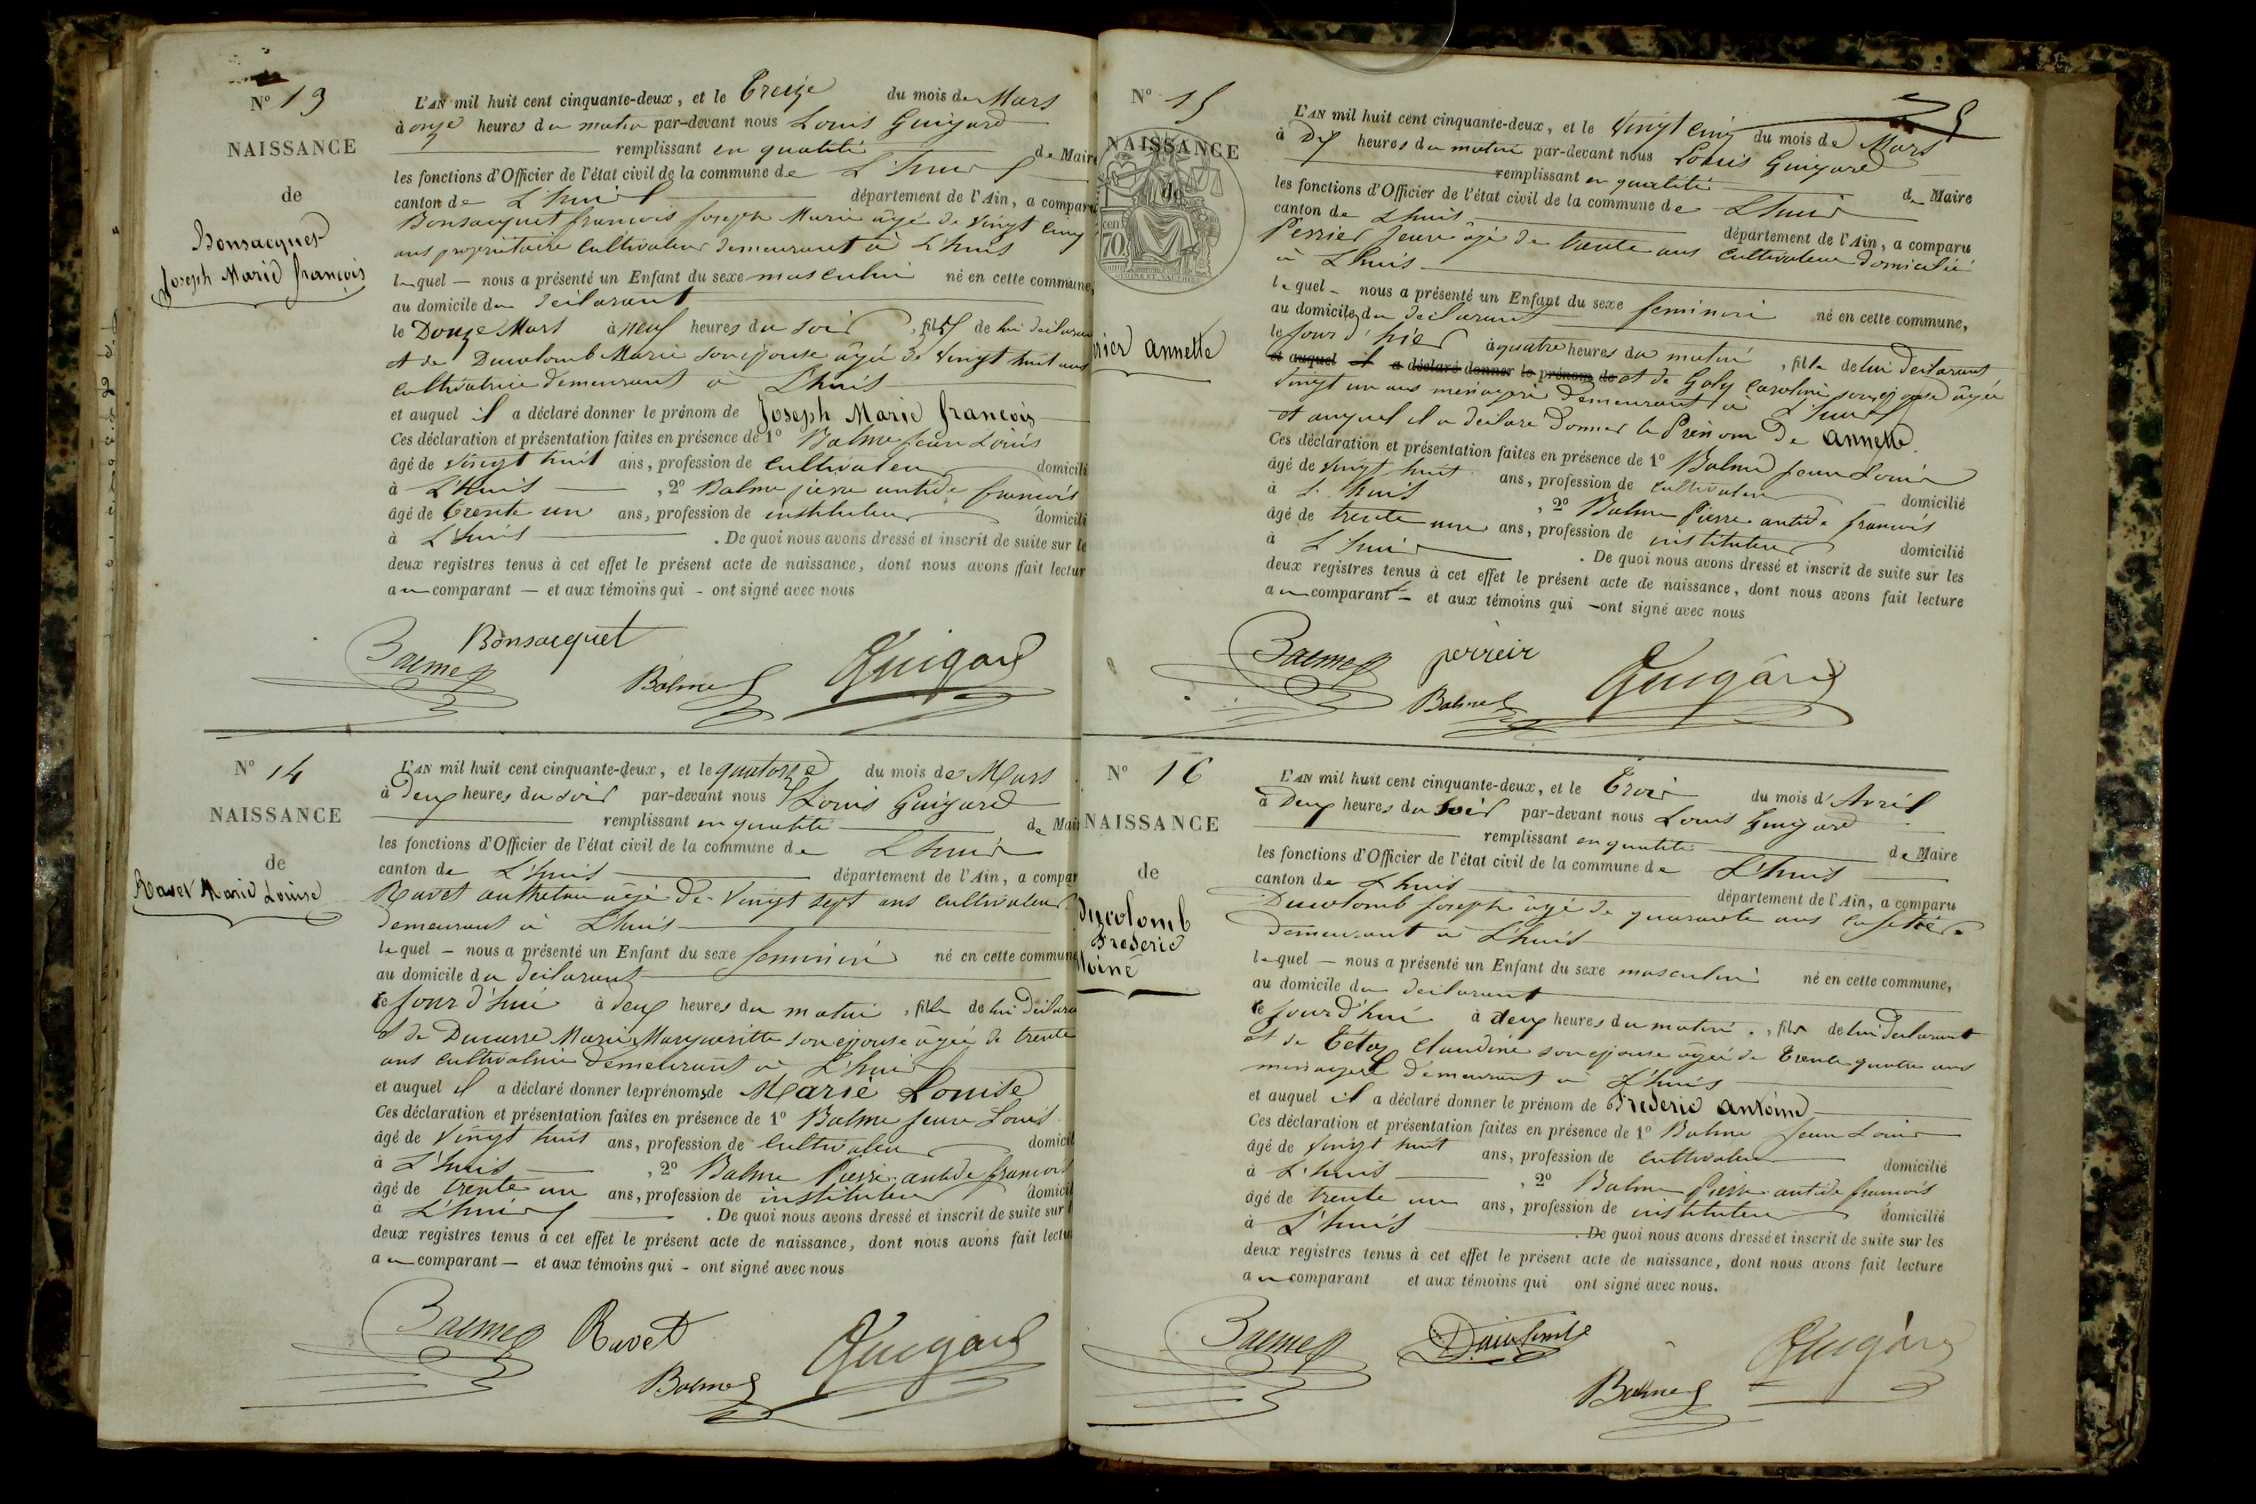 N° 13
NAISSANCE
de
Bonsacquet
Joseph Marie françois
L'AN mil huit cent cinquante-deux, et le Treize du mois de Mars
à onze heures du matin par-devant nous Louis Guigard
remplissant en qualité de Maire
les fonctions d'Officier de l'état civil de la commune de L'huis
canton de L'huis département de l'Ain, a comparu
Bonsacquet françois Joseph Marie âgé de vingt cinq
ans propriétaire cultivateur demeurant à L'huis
lequel — nous a présenté un Enfant du sexe masculin né en cette commune,
au domicile du déclarant
le Douze Mars à neuf heures du soir, fils de lui déclarant
et de Ducolomb Marie son épouse âgée de vingt huit ans
cultivatrice demeurant à L'huis
et auquel il a déclaré donner le prénom de Joseph Marie françois
Ces déclaration et présentation faites en présence de 1° Balme Jean Louis
âgé de vingt huit ans, profession de cultivateur domicili
à L'huis, 2° Balme pierre antide françois
âgé de trente un ans, profession de instituteur domicili
à L'huis. De quoi nous avons dressé et inscrit de suite sur le
deux registres tenus à cet effet le présent acte de naissance, dont nous avons fait lectur
au comparant — et aux témoins qui - ont signé avec nous
Bonsacquet
Balme Balme Guigard
N° 14
NAISSANCE
de
Ravet Marie Louise
L'AN mil huit cent cinquante-deux, et le quatorze du mois de Mars
à Deux heures du soir par-devant nous Louis Guigard
remplissant en qualité de Mair
les fonctions d'Officier de l'état civil de la commune de L'huis
canton de L'huis département de l'Ain, a compar
Ravet anthelme âgé de vingt sept ans cultivateur
demeurant à L'huis
lequel — nous a présenté un Enfant du sexe feminin né en cette commune
au domicile du déclarant
ce jour d'hui à deux heures du matin, fille de lui déclara
et de Ducarre Marie Margueritte son épouse âgée de trente
ans cultivatrice demeurant à L'huis
et auquel il a déclaré donner les prénoms de Marie Louise
Ces déclaration et présentation faites en présence de 1° Balme Jean Louis
âgé de vingt huit ans, profession de cultivateur domicil
à L'huis, 2° Balme Pierre antide françois
âgé de trente un ans, profession de instituteur domicil
à L'huis. De quoi nous avons dressé et inscrit de suite sur l
deux registres tenus à cet effet le présent acte de naissance, dont nous avons fait lectu
au comparant — et aux témoins qui - ont signé avec nous
Balme Ravet
Balme Guigard
5
N° 15
NAISSANCE
de
cent
70
rrier annette
L'AN mil huit cent cinquante-deux, et le vingt cinq du mois de Mars
à Dix heures du matin par-devant nous Louis Guigard
remplissant en qualité de Maire
les fonctions d'Officier de l'état civil de la commune de L'huis
canton de Lhuis département de l'Ain, a comparu
Perrier Jean âgé de trente ans cultivateur domicilié
à Lhuis
lequel - nous a présenté un Enfant du sexe feminin né en cette commune,
au domicile du déclarant
le jour d'hier à quatre heures du matin, fille de lui déclarant
et auquel il a déclaré donner le prénom de et de Goly Caroline son épouse âgée
vingt un ans menagère demeurant à L'huis
et auquel il a déclaré donner le Prénom de annette.
Ces déclaration et présentation faites en présence de 1° Balme Jean Louis
âgé de vingt huit ans, profession de cultivateur domicilié
à L'huis, 2° Balme Pierre antide françois
âgé de trente un ans, profession de instituteur domicilié
à L'huis. De quoi nous avons dressé et inscrit de suite sur les
deux registres tenus à cet effet le présent acte de naissance, dont nous avons fait lecture
au comparant — et aux témoins qui — ont signé avec nous
Balme perreir
Balme Guigard
N° 16
NAISSANCE
de
Ducolomb
Frederic
L'AN mil huit cent cinquante-deux, et le Trois du mois d'Avril
à Deux heures du soir par-devant nous Louis Guigard
remplissant en qualité de Maire
les fonctions d'Officier de l'état civil de la commune de L'huis
canton de Lhuis département de l'Ain, a comparu
Ducolomb Joseph âgé de quarante ans cafetier
demeurant à L'huis
lequel — nous a présenté un Enfant du sexe masculin né en cette commune,
au domicile du déclarant
ce jourd'hui à deux heures du matin, fils de lui déclarant
et de Claudine son épouse âgée de trente quatre ans
menagère demeurant à L'huis
et auquel il a déclaré donner le prénom de Frederic antoine
Ces déclaration et présentation faites en présence de 1° Balme Jean Louis
âgé de vingt huit ans, profession de cultivateur domicilié
à L'huis, 2° Balme Pierre antide françois
âgé de trente un ans, profession de instituteur domicilié
à L'huis. De quoi nous avons dressé et inscrit de suite sur les
deux registres tenus à cet effet le présent acte de naissance, dont nous avons fait lecture
au comparant et aux témoins qui ont signé avec nous.
Balme Ducolomb
Balme Guigard